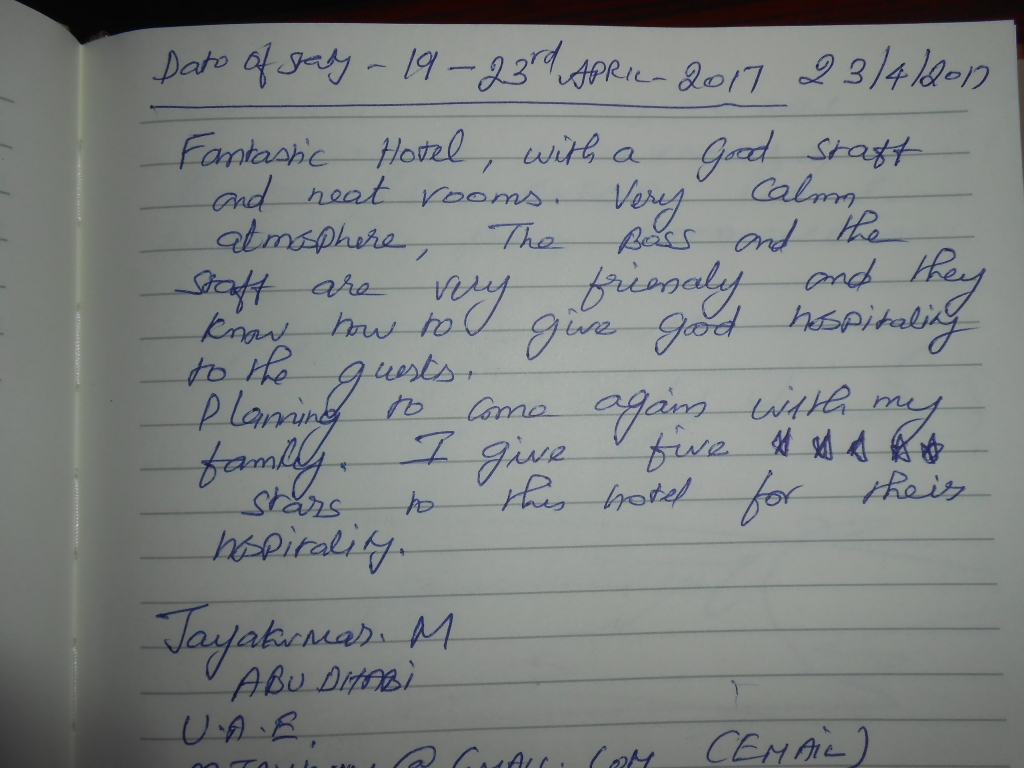 Date of stay - 19 - 23rd APRIL - 2017 23/4/2017
Fantastic Hotel, with a good staff
and neat rooms. Very Calm
atmosphere, The Boss and the
staff are very friendly and they
know how to give good hospitality
to the guests.
Planning to come again with my
family. I give five ★ ★ ★ ★ ★
stars to this hotel for their
hospitality.
Jayakumar. M
ABU DHABI
U.A.E.
@ GMAIL. COM (EMAIL)